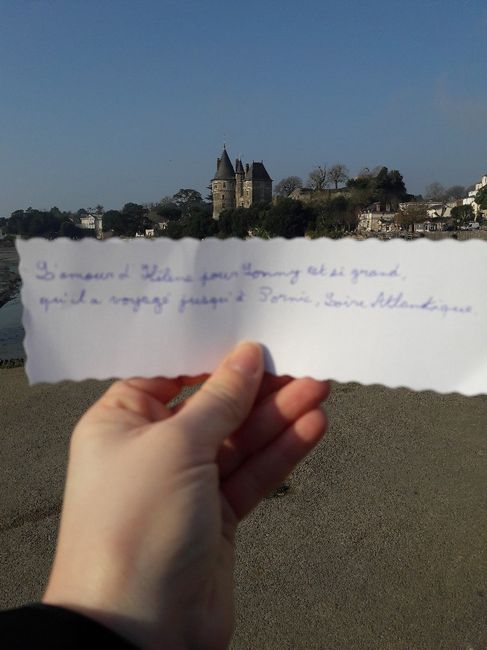 L'amour d'Hélène pour Lonny est si grand,
qu'il a voyagé jusqu'à Pornic, Loire Atlantique.